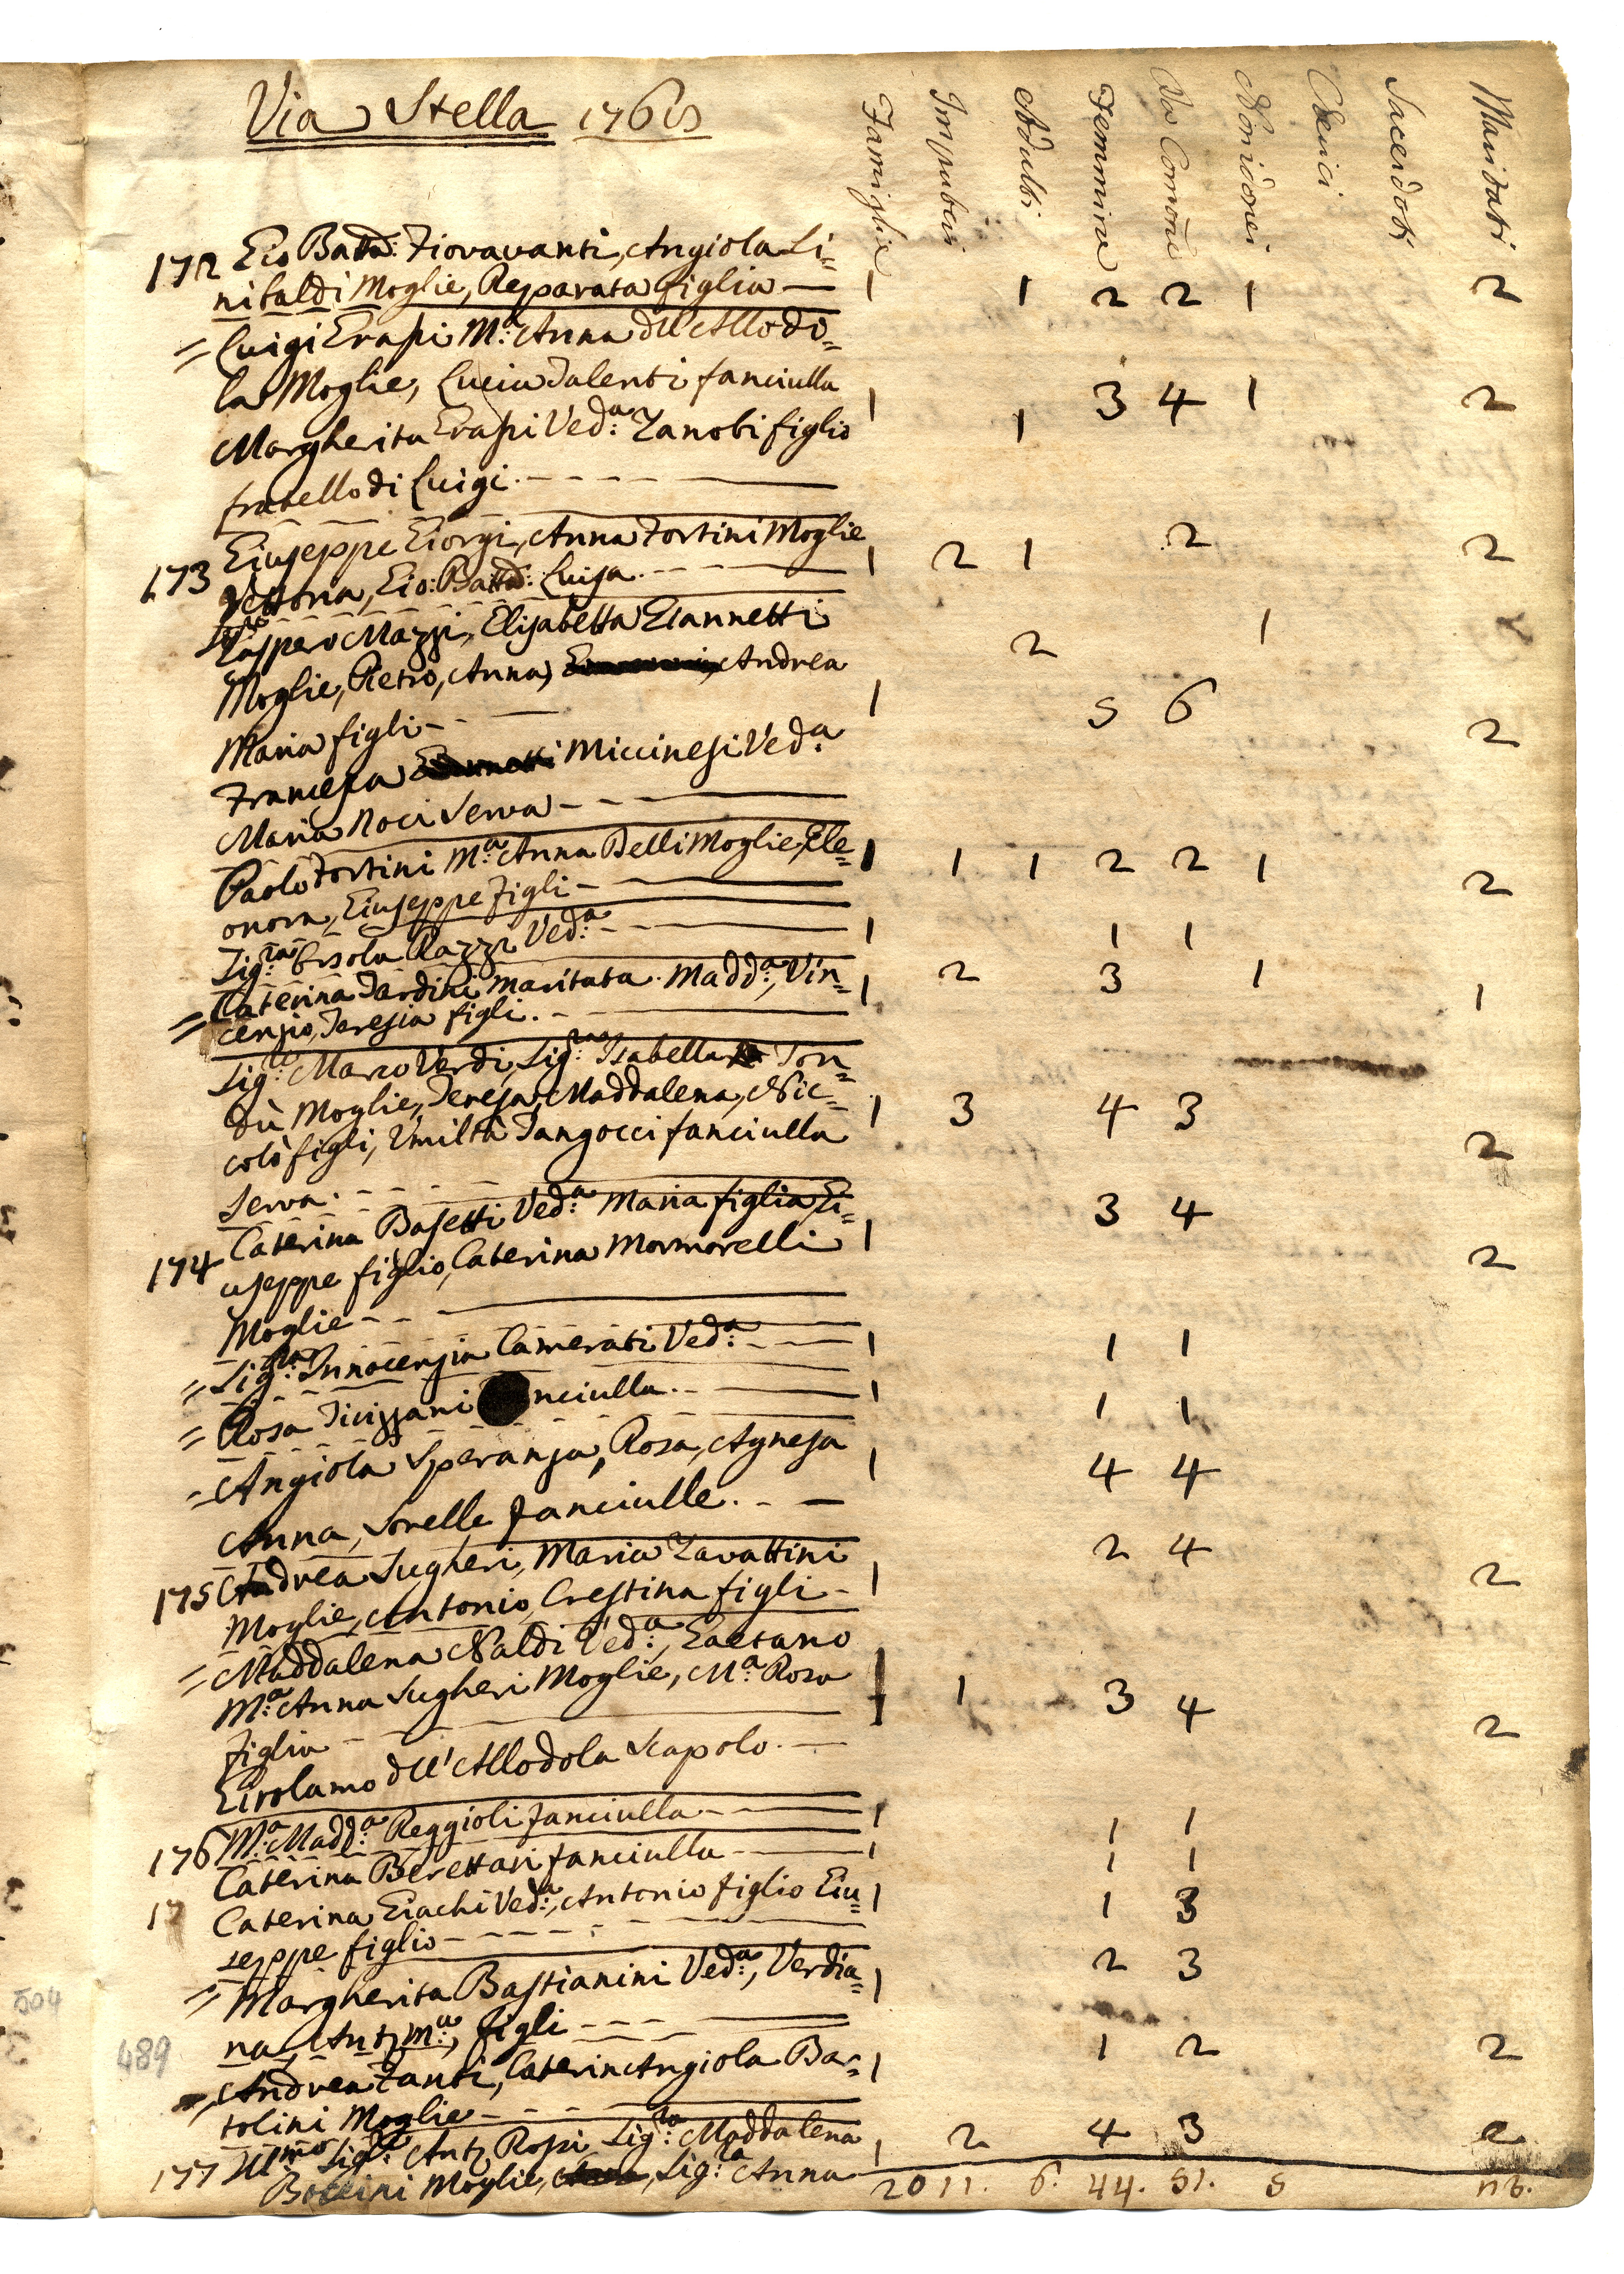 Via Stella 1768
Famiglie Impuberi Adulti Femmine Da Comone Cherici Sacerdoti Maritati
172 Gio Batta: Fioravanti, Angiola Li=
nibaldi Moglie, Reparata figlia — 1 1 2 2 1 2
= Luigi Grassi M:a Anna dell'Allodo=
la Moglie, Lucia Talenti fanciulla 1 3 4 1 2
Margherita Grassi Ved:a Zanobi figlio 1
fratello di Luigi. - - - -
173 Giuseppe Giorgi, Anna Fortini Moglie
Vettoria, Gio: Batta: Luisa. - - - 1 2 1 2 2
Gaspero Mazzi, Elisabetta Giannetti 2 1
Moglie, Pietro, Anna, Andrea 1 5 6
Maria figli - - 2
Francesca Miccinesi Ved:a
Maria Noci Serva - - -
Paolo Fortini M:a Anna Belli Moglie, Ele= 1 1 1 2 2 1 2
onora, Giuseppe Figli -
Sig:ra Orsola Razzi Ved:a - - 1 1 1
= Caterina Tardini maritata. Madd:a, Vin= 1 2 3 1 1
cenzio, Teresia figli. - -
Sig:re Marco Verdi, Sig:ra Isabella Ton=
dù Moglie, Teresa, Maddalena, Nic= 1 3 4 3
colò figli, Umiltà Tangocci fanciulla 2
Serva. - - - -
174 Caterina Basetti Ved:a Maria figlia, Gi= 3 4
useppe figlio, Caterina Mormorelli 1 2
Moglie - -
= Sig:ra Innocenzia Camerati Ved:a - - 1 1 1
= Rosa Ticizzani nciulla. - 1 1 1
= Angiola Speranza, Rosa, Agnesa 1 4 4
Anna, Sorelle fanciulle. - -
175 Andrea Sugheri, Maria Zavattini 2 4
Moglie, Antonio, Crestina figli - 1 2
= Maddalena Naldi Ved:a, Gaetano
M:a Anna Sugheri Moglie, M:a Rosa 1 1 3 4
figlia - - 2
Girolamo dell'Allodola Scapolo. -
176 M:a Madd:a Reggioli fanciulla - - 1 1 1
Caterina Berettari fanciulla - 1 1 1
17 Caterina Giachi Ved:a, Antonio figlio Giu= 1 1 3
seppe figlio - - - -
= Margherita Bastianini Ved:a, Verdia= 1 2 3
na, Ant:o M:a, figli - - -
= Andrea Fanti, Caterin Angiola Bar= 1 1 2 2
tolini Moglie - - -
177 Ill:mo Sig:re Ant:o Rossi Sig:ra Maddalena 1 2 4 3 2
Moglie, Sig:ra Anna
20 11. 6. 44. 51. 5
504
489